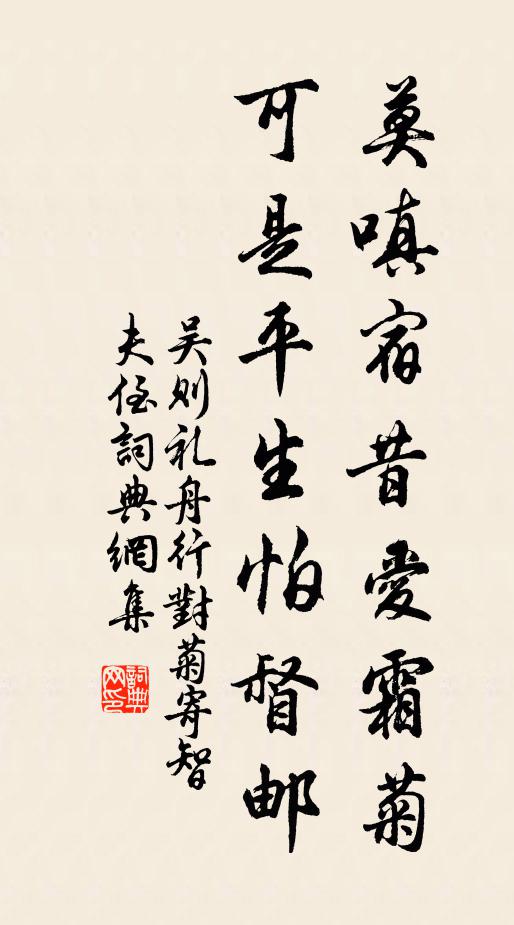 莫嗔宿昔愛霜菊
可是平生怕督邮
吴则礼舟行對菊寄智
夫侄詞典網集
詞典网印